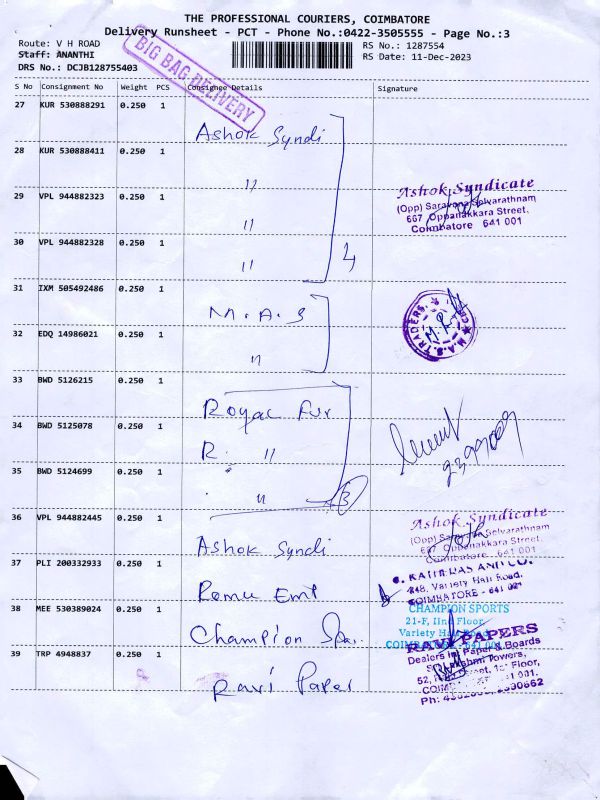 THE PROFESSIONAL COURIERS, COIMBATORE
Delivery Runsheet - PCT - Phone No.:0422-3505555 - Page No.:3
Route: V H ROAD
RS No.: 1287554
Staff: ANANTHI
RS Date: 11-Dec-2023
DRS No.: DCJB128755403
BIG BAG DELIVERY
S No Consignment No Weight PCS Consignee Details Signature
27 KUR 530888291 0.250 1 Ashok Syndi
28 KUR 530888411 0.250 1 "
29 VPL 944882323 0.250 1 "
30 VPL 944882328 0.250 1 " 4
Ashok Syndicate
(Opp) Saravana Selvarathnam
667, Oppanakkara Street,
Coimbatore 641 001
31 IXM 505492486 0.250 1 M.A.S
32 EDQ 14986021 0.250 1 "
M.A.S. TRADERS
33 BWD 5126215 0.250 1 Royal Fur
34 BWD 5125078 0.250 1 R. "
35 BWD 5124699 0.250 1 " 3
36 VPL 944882445 0.250 1 Ashok Syndi
Ashok Syndicate
(Opp) Saravana Selvarathnam
667, Oppanakkara Street,
Coimbatore 641 001
37 PLI 200332933 0.250 1 Ramu Emt
AND CO.
848, Variety Hall Road,
COIMBATORE - 641 001
38 MEE 530389024 0.250 1 Champion Spo.
CHAMPION SPORTS
21-F, IInd Floor,
Variety Hall Road
641 001
39 TRP 4948837 0.250 1 Ravi Paper
RAVI PAPERS
Dealers in: Paper & Boards
Sri Lakshmi Towers,
Street, 1st Floor,